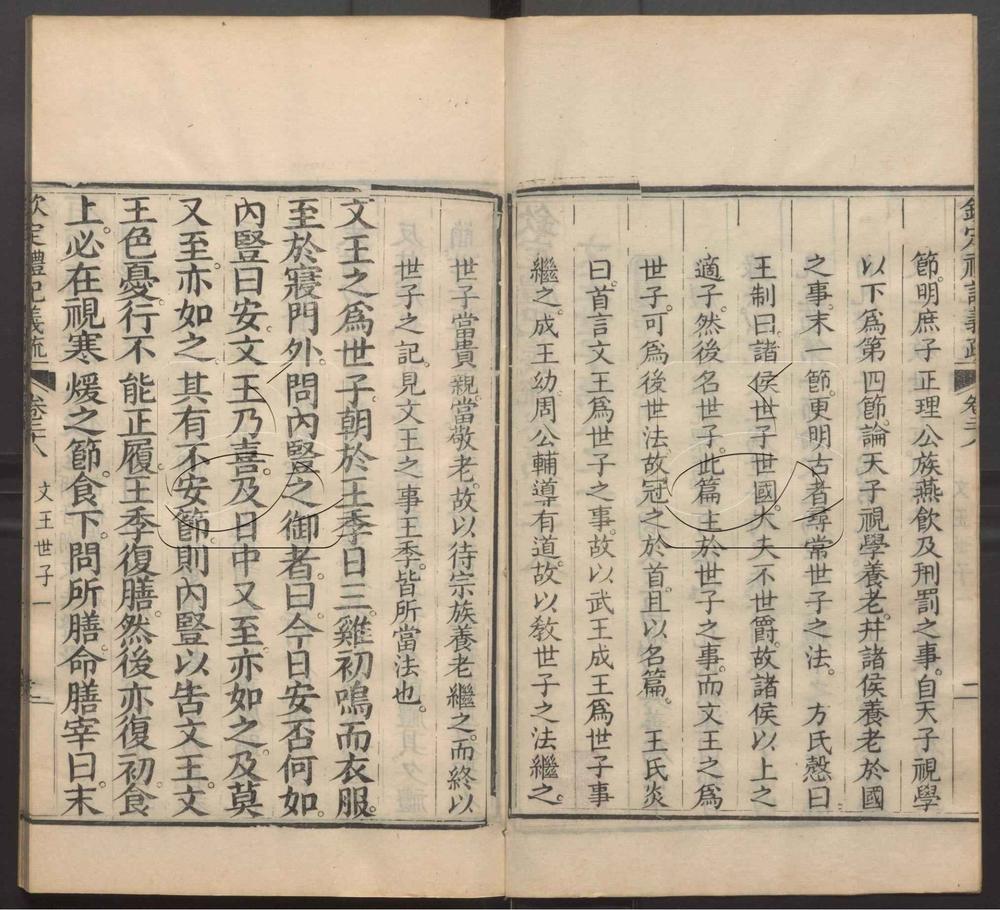 節。明庶子正理公族燕飲及刑罰之事。自天子視學
以下爲第四節。論天子視學養老。幷諸侯養老於國
之事。末一節。更明古者尋常世子之法。 方氏慤曰
王制曰。諸侯世子世國。大夫不世爵。故諸侯以上之
適子。然後名世子。此篇主於世子之事。而文王之爲
世子。可爲後世法。故冠之於首。且以名篇。 王氏炎
曰。首言文王爲世子之事。故以武王成王爲世子事
繼之。成王幼。周公輔導有道。故以敎世子之法繼之。
世子當貴親。當敬老。故以待宗族養老繼之。而終以
世子之記。見文王之事王季。皆所當法也。
文王之爲世子。朝於王季日三。雞初鳴而衣服。
至於寢門外。問內豎之御者。曰今日安否何如。
內豎曰安。文王乃喜。及日中又至。亦如之。及莫
又至。亦如之。其有不安節。則內豎以告文王。文
王色憂。行不能正履。王季復膳。然後亦復初。食
上。必在視寒煖之節。食下。問所膳。命膳宰曰。末
欽定禮記義疏 卷二十八 文王世子一